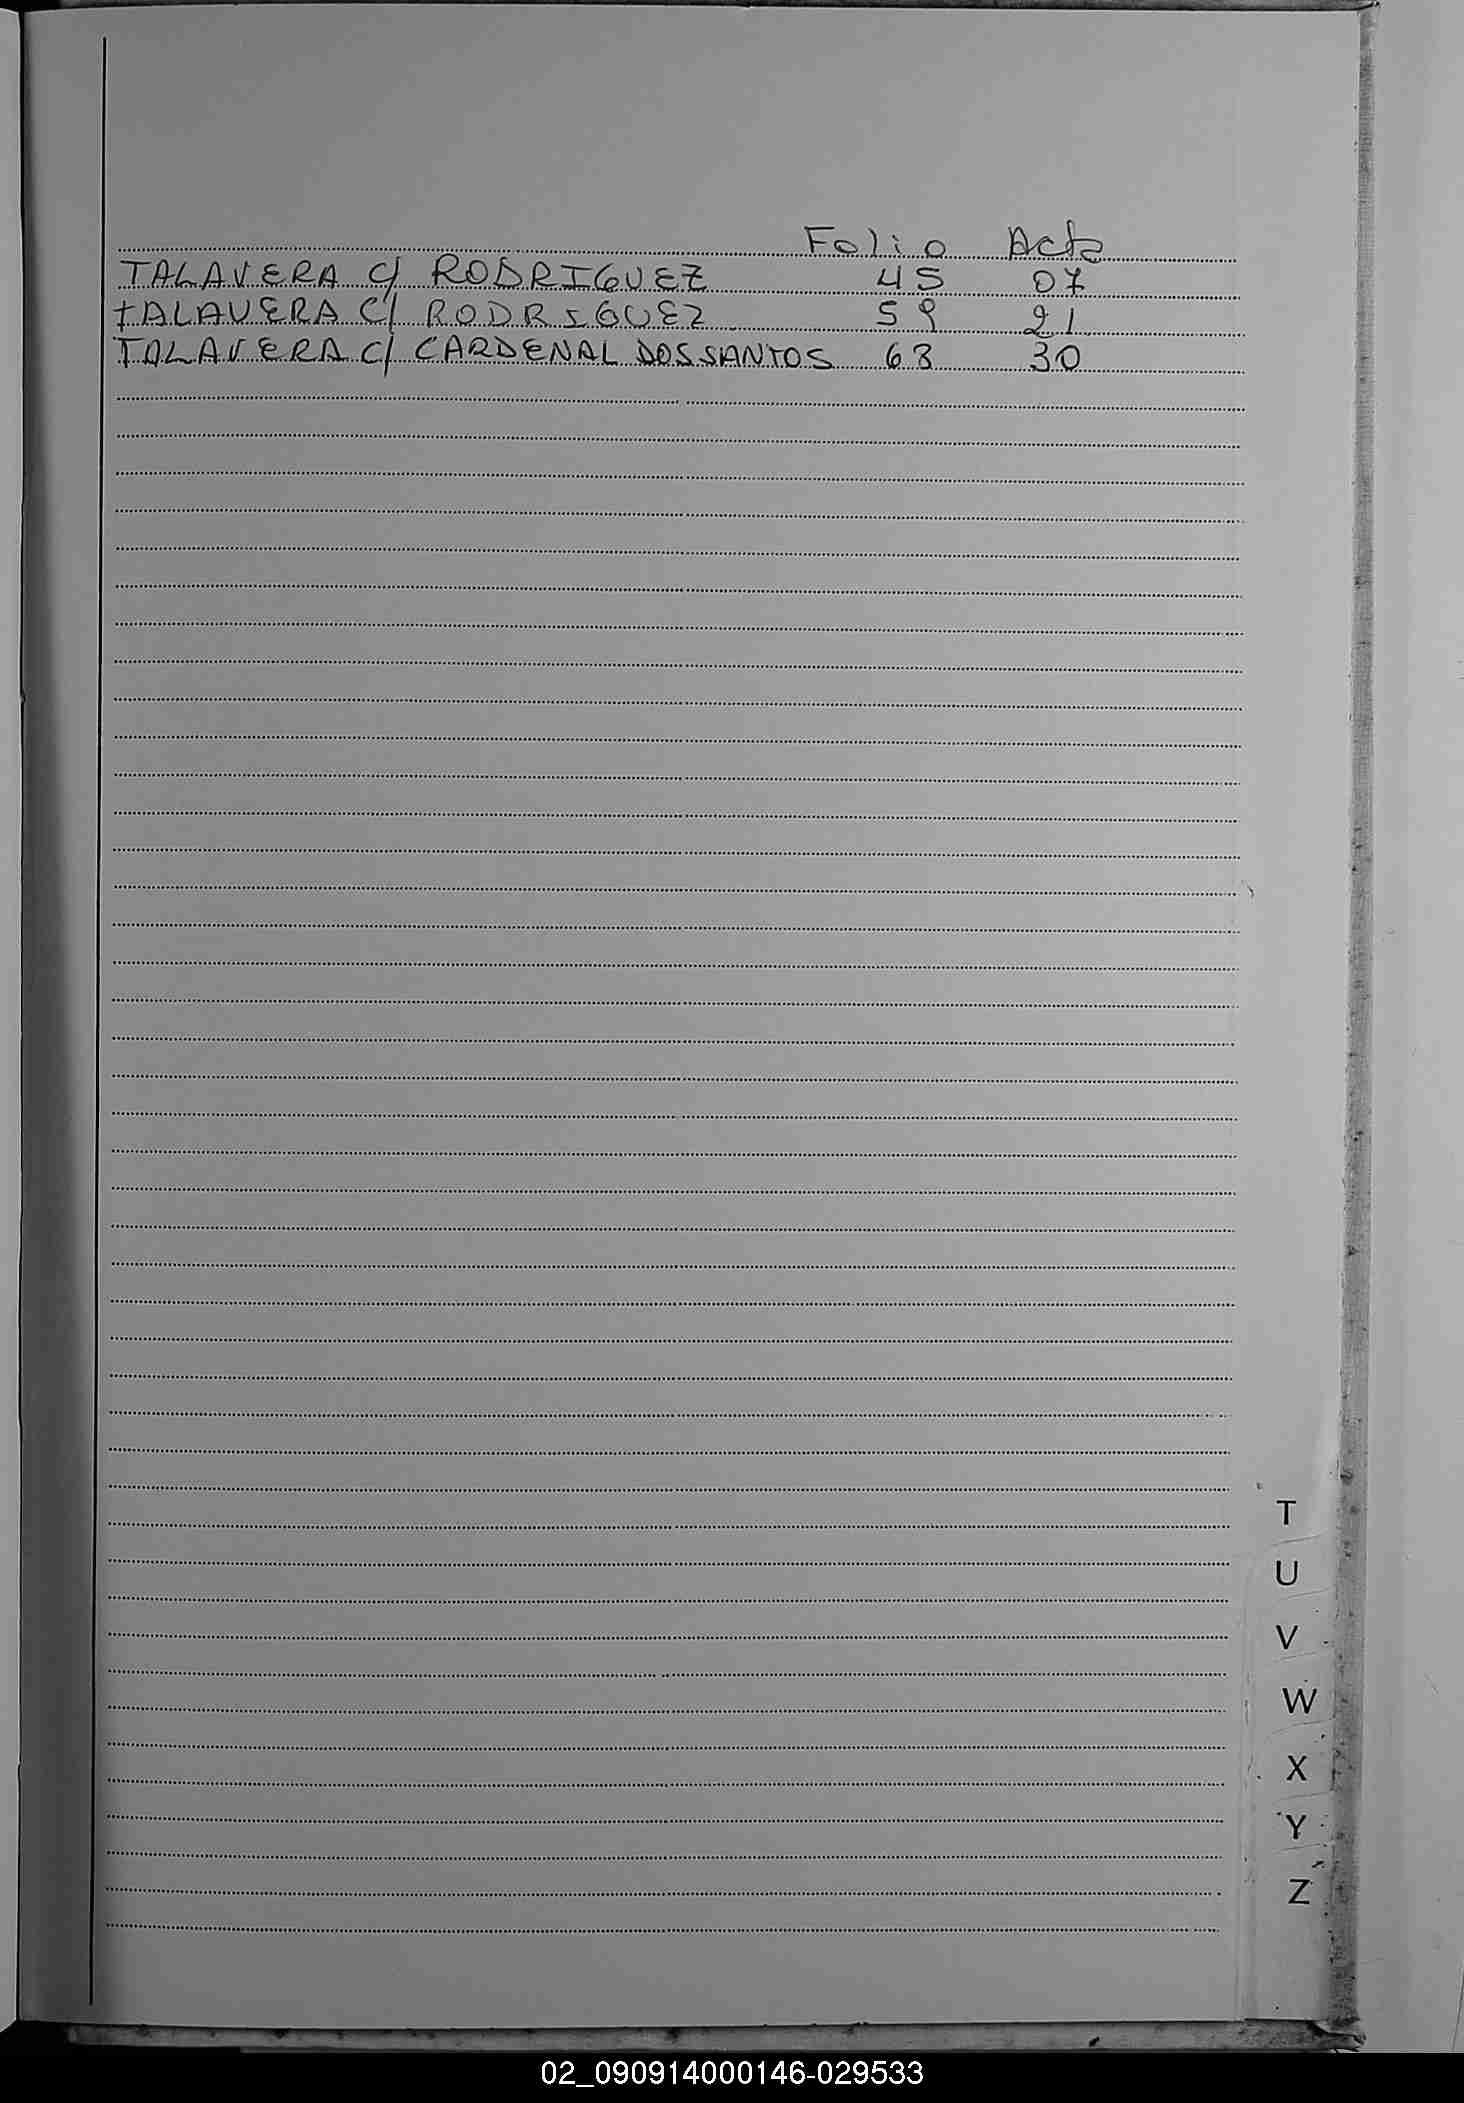 Folio Acta
TALAVERA C/ RODRIGUEZ 45 07
TALAVERA C/ RODRIGUEZ 59 21
TALAVERA C/ CARDENAL DOS SANTOS 68 30
T
U
V
W
X
Y
Z
02_090914000146-029533